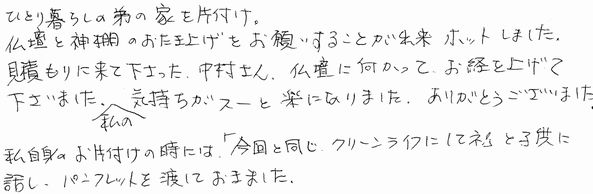 ひとり暮らしの弟の家を片付け。
仏壇と神棚のお焚上げをお願いすることが出来 ホットしました。
見積もりに来て下さった、中村さん、仏壇に向かって、お経を上げて
下さいました、私の 気持ちがスーと楽になりました、ありがとうございました。
私自身のお片付けの時には、「今回と同じ、クリーンライフにしてネ」と子供に
話し、パンフレットを渡しておきました。